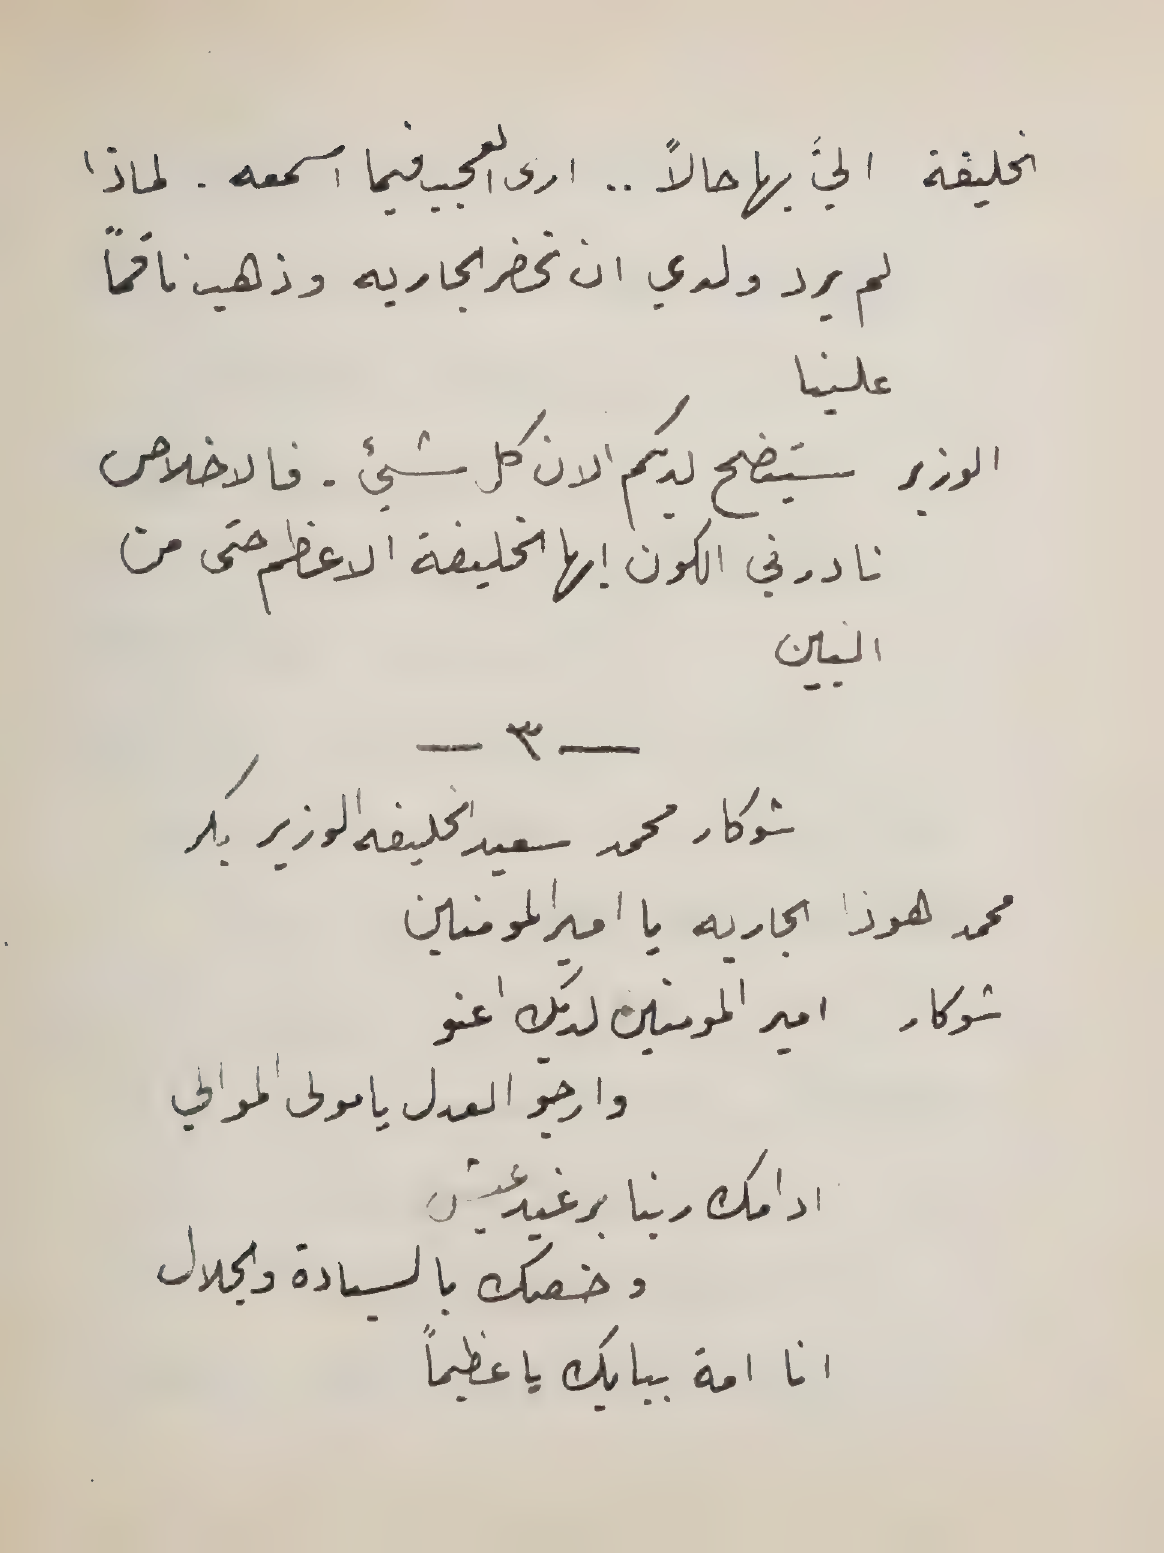 الخليفة اليَّ بها حالاً .. ارى العجب فيما اسمعه . لماذا
لم يرد ولدي ان تحضر الجاريه وذهب ناقماً
علينا
الوزير ستيضح لديكم الان كل شيئ . فالاخلاص
نادر في الكون ايها الخليفة الاعظم حتى من
البنين
— ٣ —
شوكار محمد سعيد الخليفه الوزير بكر
محمد هوذا الجاريه يا امير المومنين
شوكار امير المومنين لديك اعنو
وارجو العدل يا مولى الموالي
ادامك ربنا برغيد عيش
وخصك بالسيادة والجلال
انا امة ببابك يا عظيماً